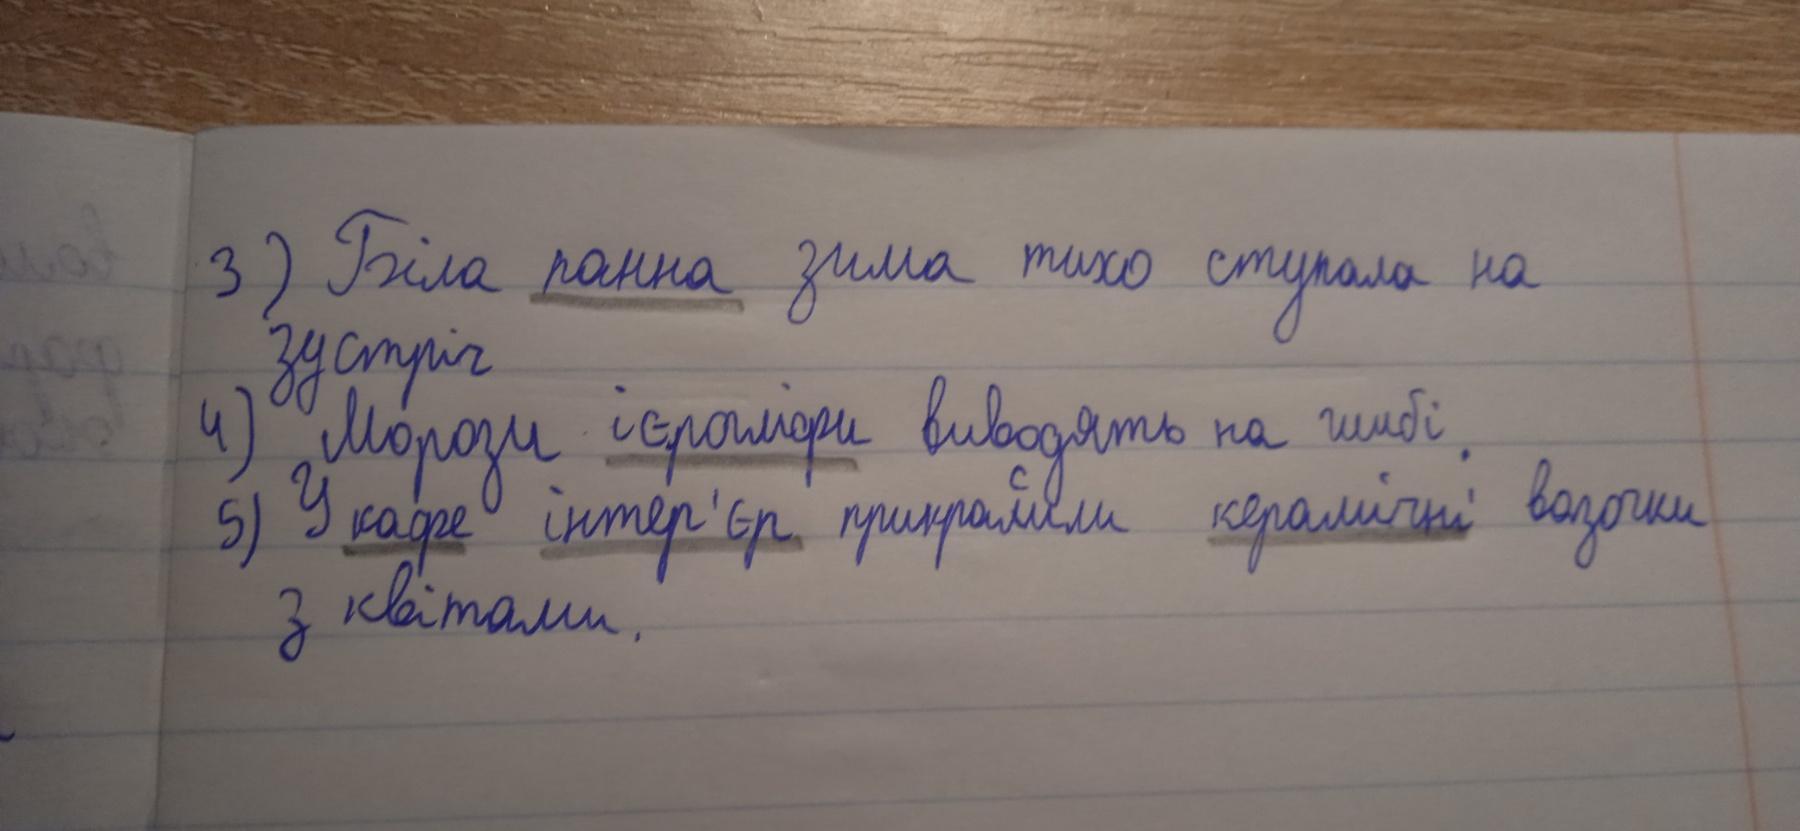 3) Біла панна зима тихо ступала на
зустріч
4) Морози ієрогліфи виводять на шибі.
5) У кафе інтер'єр прикрасили керамічні вазочки
з квітами.